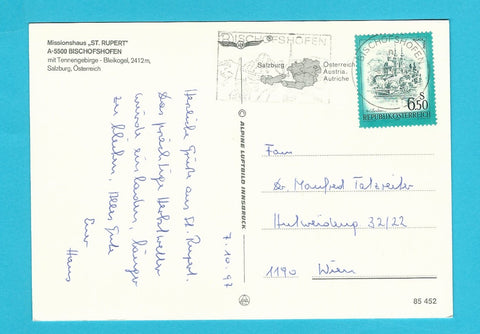 Missionshaus „ST. RUPERT"
A-5500 BISCHOFSHOFEN
mit Tennengebirge - Bleikogel, 2412m,
Salzburg, Österreich
BISCHOFSHOFEN
Salzburg
Österreich
Austria
Autriche
BISCHOFSHOFEN
S
6.50
REPUBLIK ÖSTERREICH
7.10.97
Herzliche Grüße aus St. Rupert.
Das prächtige Herbstwetter
würde einladen, länger
zu bleiben. Alles Gute
Euer
Hans
© ALPINE LUFTBILD INNSBRUCK
Fam
Dr. Manfred Tatzreiter
Hutweideng 32/22
1190 Wien
85 452